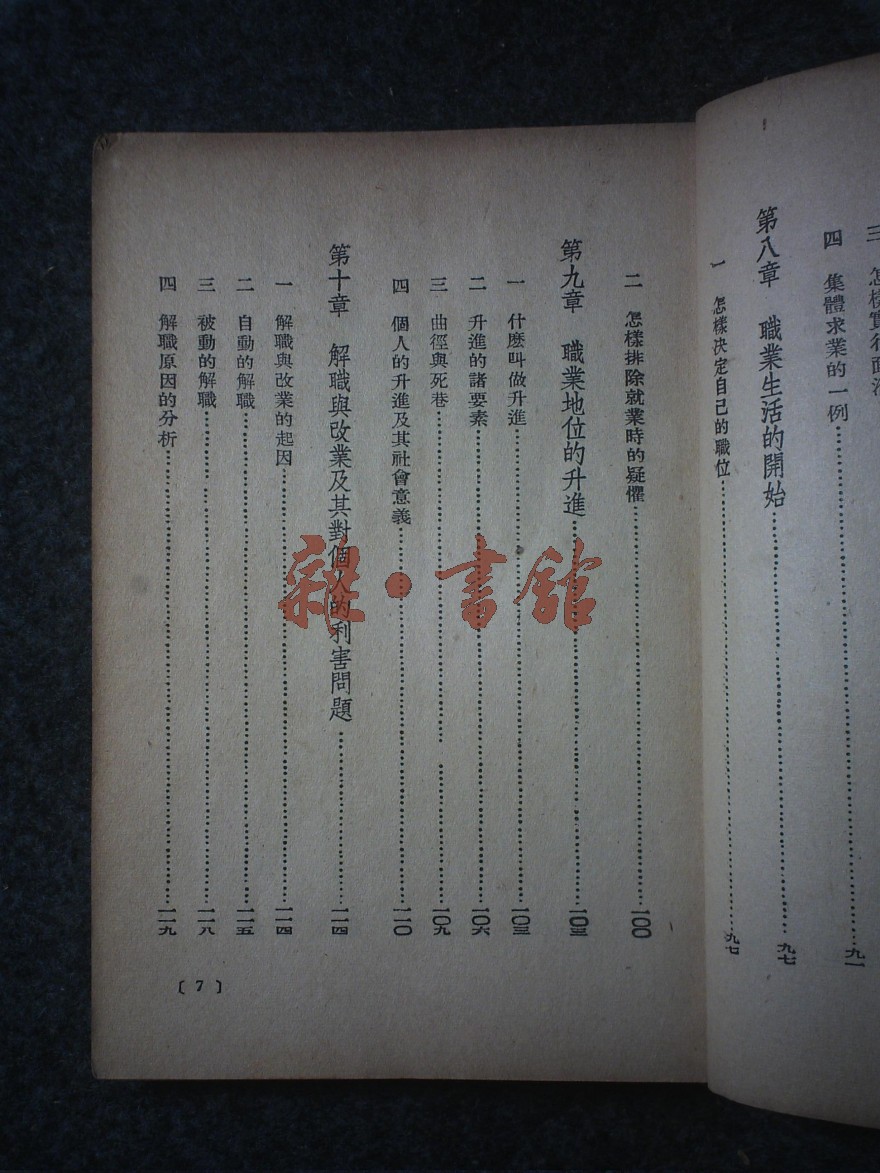 四 集體求業的一例……九一
第八章 職業生活的開始……九七
一 怎樣决定自己的職位……九七
二 怎樣排除就業時的疑懼……一〇〇
第九章 職業地位的升進……一〇三
一 什麽叫做升進……一〇三
二 升進的諸要素……一〇六
三 曲徑與死巷……一〇九
四 個人的升進及其社會意義……一一〇
第十章 解職與改業及其對個人的利害問題……一一四
一 解職與改業的起因……一一四
二 自動的解職……一一五
三 被動的解職……一一八
四 解職原因的分析……一一九
〔7〕
雜·書館